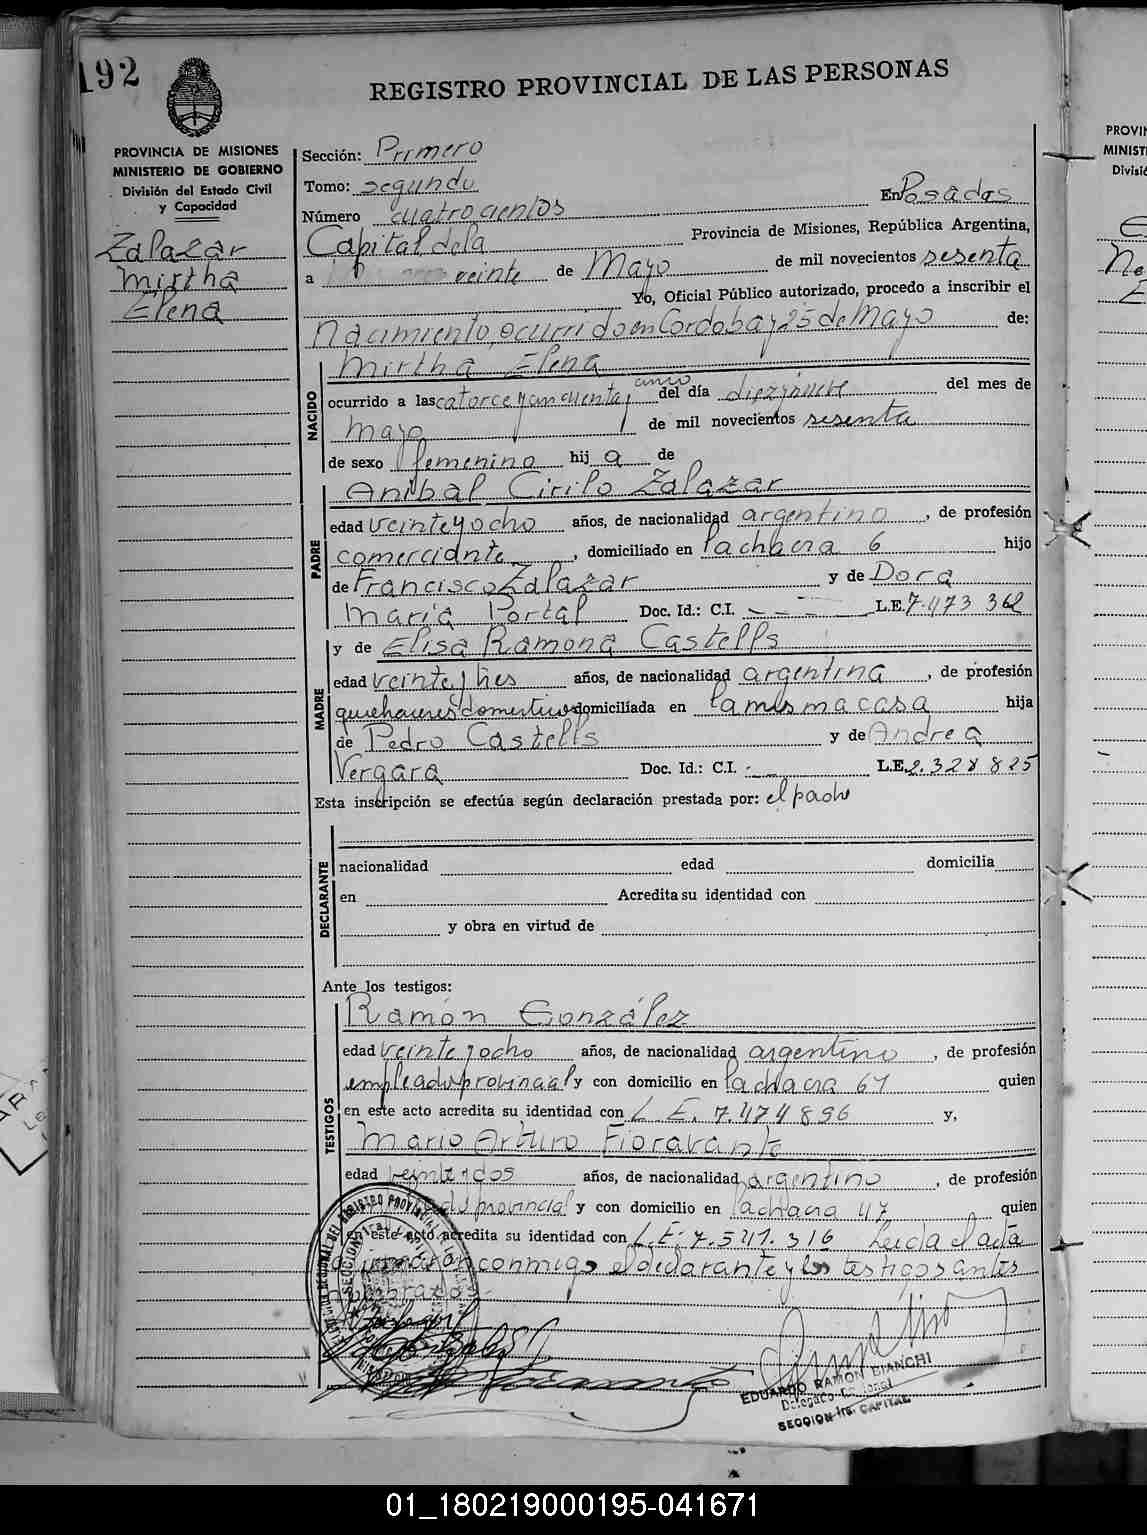 192
REGISTRO PROVINCIAL DE LAS PERSONAS
PROVINCIA DE MISIONES
MINISTERIO DE GOBIERNO
División del Estado Civil
y Capacidad
Zalazar
Mirtha
Elena
Sección: Primero
Tomo: segundo
Número cuatrocientos En Posadas
Capital de la Provincia de Misiones, República Argentina,
a veinte de Mayo de mil novecientos sesenta
Yo, Oficial Público autorizado, procedo a inscribir el
Nacimiento, ocurrido en Cordoba y 25 de Mayo de:
NACIDO
Mirtha Elena
ocurrido a las catorce y cincuenta y cinco del día diezinueve del mes de
mayo de mil novecientos sesenta
de sexo femenino hij a de
PADRE
Anibal Cirilo Zalazar
edad veinte y ocho años, de nacionalidad argentino, de profesión
comerciante, domiciliado en la chacra 6 hijo
de Francisco Zalazar y de Dora
Maria Portal Doc. Id.: C.I. L.E. 7.473 362
MADRE
y de Elisa Ramona Castells
edad veinte y tres años, de nacionalidad argentina, de profesión
quehaceres domesticos domiciliada en la misma casa hija
de Pedro Castells y de Andrea
Vergara Doc. Id.: C.I. L.E. 2.328 825
Esta inscripción se efectúa según declaración prestada por: el padre
DECLARANTE
nacionalidad edad domicilia
en Acredita su identidad con
y obra en virtud de
Ante los testigos:
TESTIGOS
Ramón González
edad veinte y ocho años, de nacionalidad argentino, de profesión
empleado provincial y con domicilio en la chacra 61 quien
en este acto acredita su identidad con L. E. 7.474 896 y,
Mario Arturo Fioravante
edad veinte y dos años, de nacionalidad argentino, de profesión
provincial y con domicilio en la chacra 47 quien
en este acto acredita su identidad con L.E: 7.541.316 Leida el acta
conmigo el declarante y los testigos antes
EDUARDO RAMON BIANCHI
SECCION 1ra. CAPITAL
01_180219000195-041671